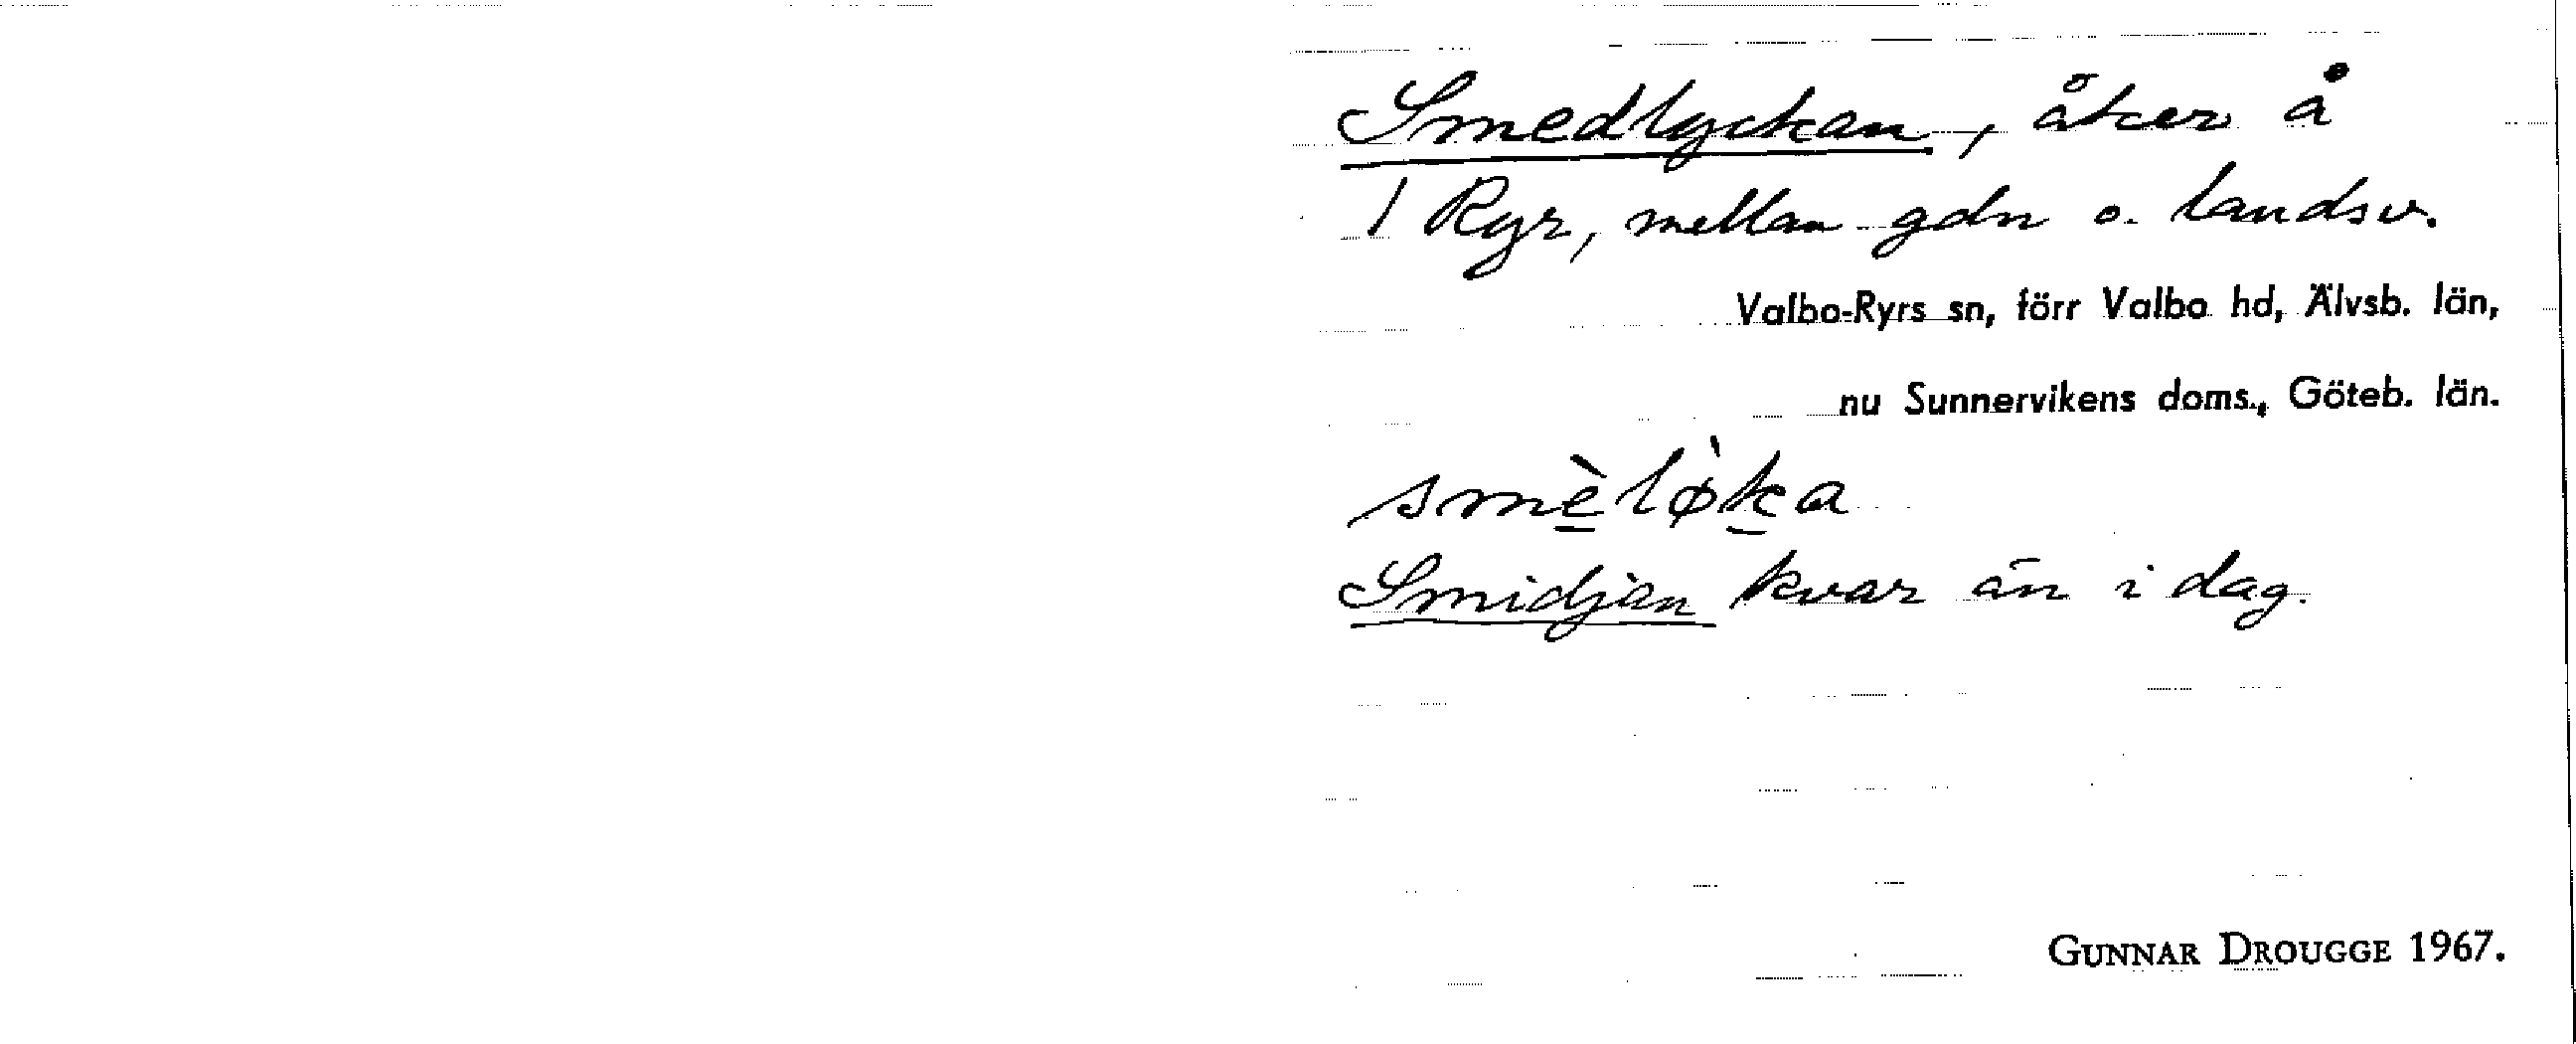 Smedlyckan, åker å
1 Ryr, mellan gdn o. landsv.
Valbo-Ryrs sn, förr Valbo hd, Älvsb. län,
nu Sunnervikens doms., Göteb. län.
smè̲lø̀k̲a
Smidjan kvar än i dag.
GUNNAR DROUGGE 1967.